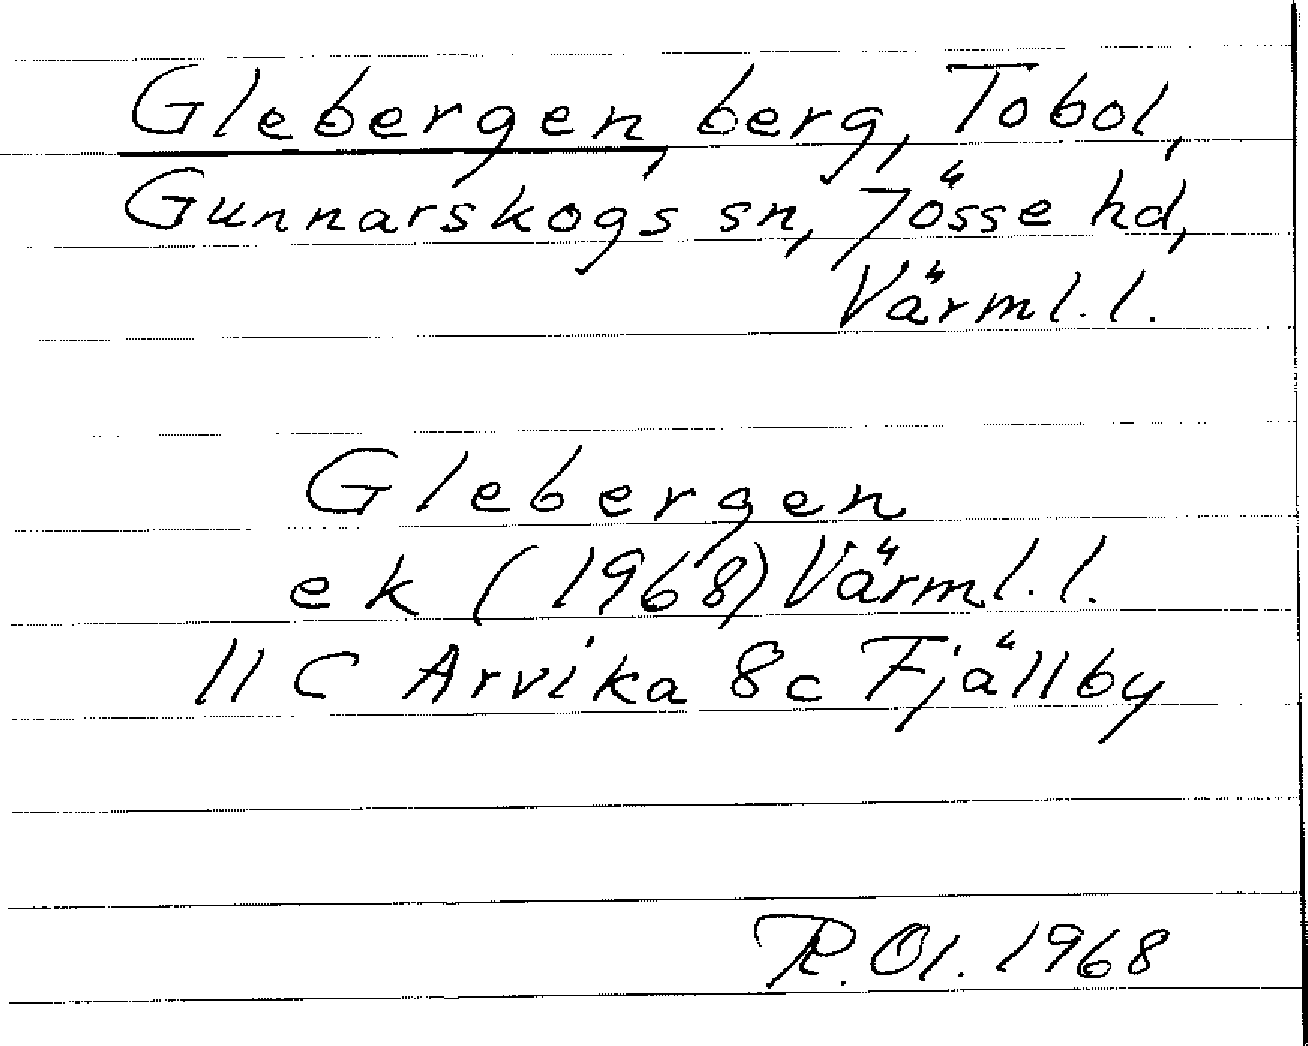 Glebergen, berg, Tobol,
Gunnarskogs sn, Jösse hd,
Värml. l.
Glebergen
ek (1968) Värml. l.
11 C Arvika 8c Fjällby
R. Ol. 1968